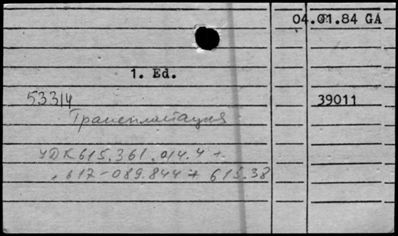 04.01.84 GA
1. Ed.
533/4
39011
Трансплантация
УДК 615.361.014.4 +
+ 617-089.844 + 615.38